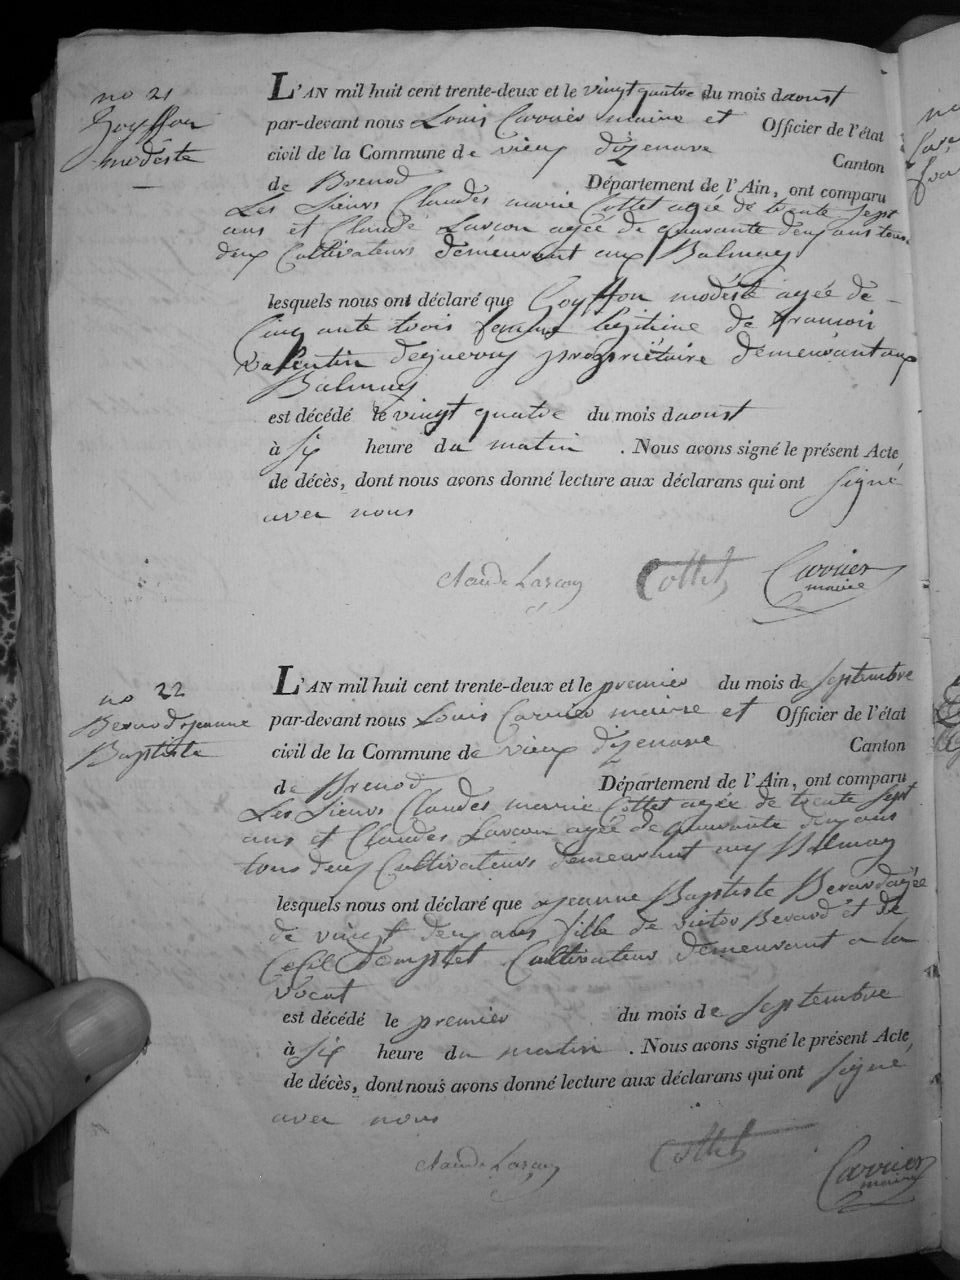 no 21
Goyffon
modeste
L'AN mil huit cent trente-deux et le vingt quatre du mois daoust
par-devant nous Louis Carrier maire et Officier de l'état
civil de la Commune de vieux dizenave Canton
de Brenod Département de l'Ain, ont comparu
Les Sieurs Claudes marie Cottet agée de trente sept
ans et Claude Larçon agée de quarante deux ans tous
deux Cultivateurs demeurant aux Balmay
lesquels nous ont déclaré que Goyffon modeste agée de
Cinquante trois femme legitime de francois
valentin proprietaire demeurant aux
Balmay
est décédé le vingt quatre du mois daoust
à six heure du matin . Nous avons signé le présent Acte
de décès, dont nous avons donné lecture aux déclarans qui ont signé
avec nous
Claude Larçon Cottet Carrier
maire
no 22
Berard jeanne
Baptiste
L'AN mil huit cent trente-deux et le premier du mois de septembre
par-devant nous Louis Carrier maire et Officier de l'état
civil de la Commune de vieux dizenave Canton
de Brenod Département de l'Ain, ont comparu
Les Sieurs Claudes marie Cottet agée de trente sept
ans et Claudes Larçon agée de quarante deux ans
tous deux Cultivateurs demeurant aux Balmay
lesquels nous ont déclaré que jeanne Baptiste Berard agée
de vingt deux ans fille de victor Berard et de
Cultivateur demeurant a la
est décédé le premier du mois de septembre
à six heure du matin . Nous avons signé le présent Acte,
de décès, dont nous avons donné lecture aux déclarans qui ont signé
avec nous
Claude Larçon Cottet Carrier
maire